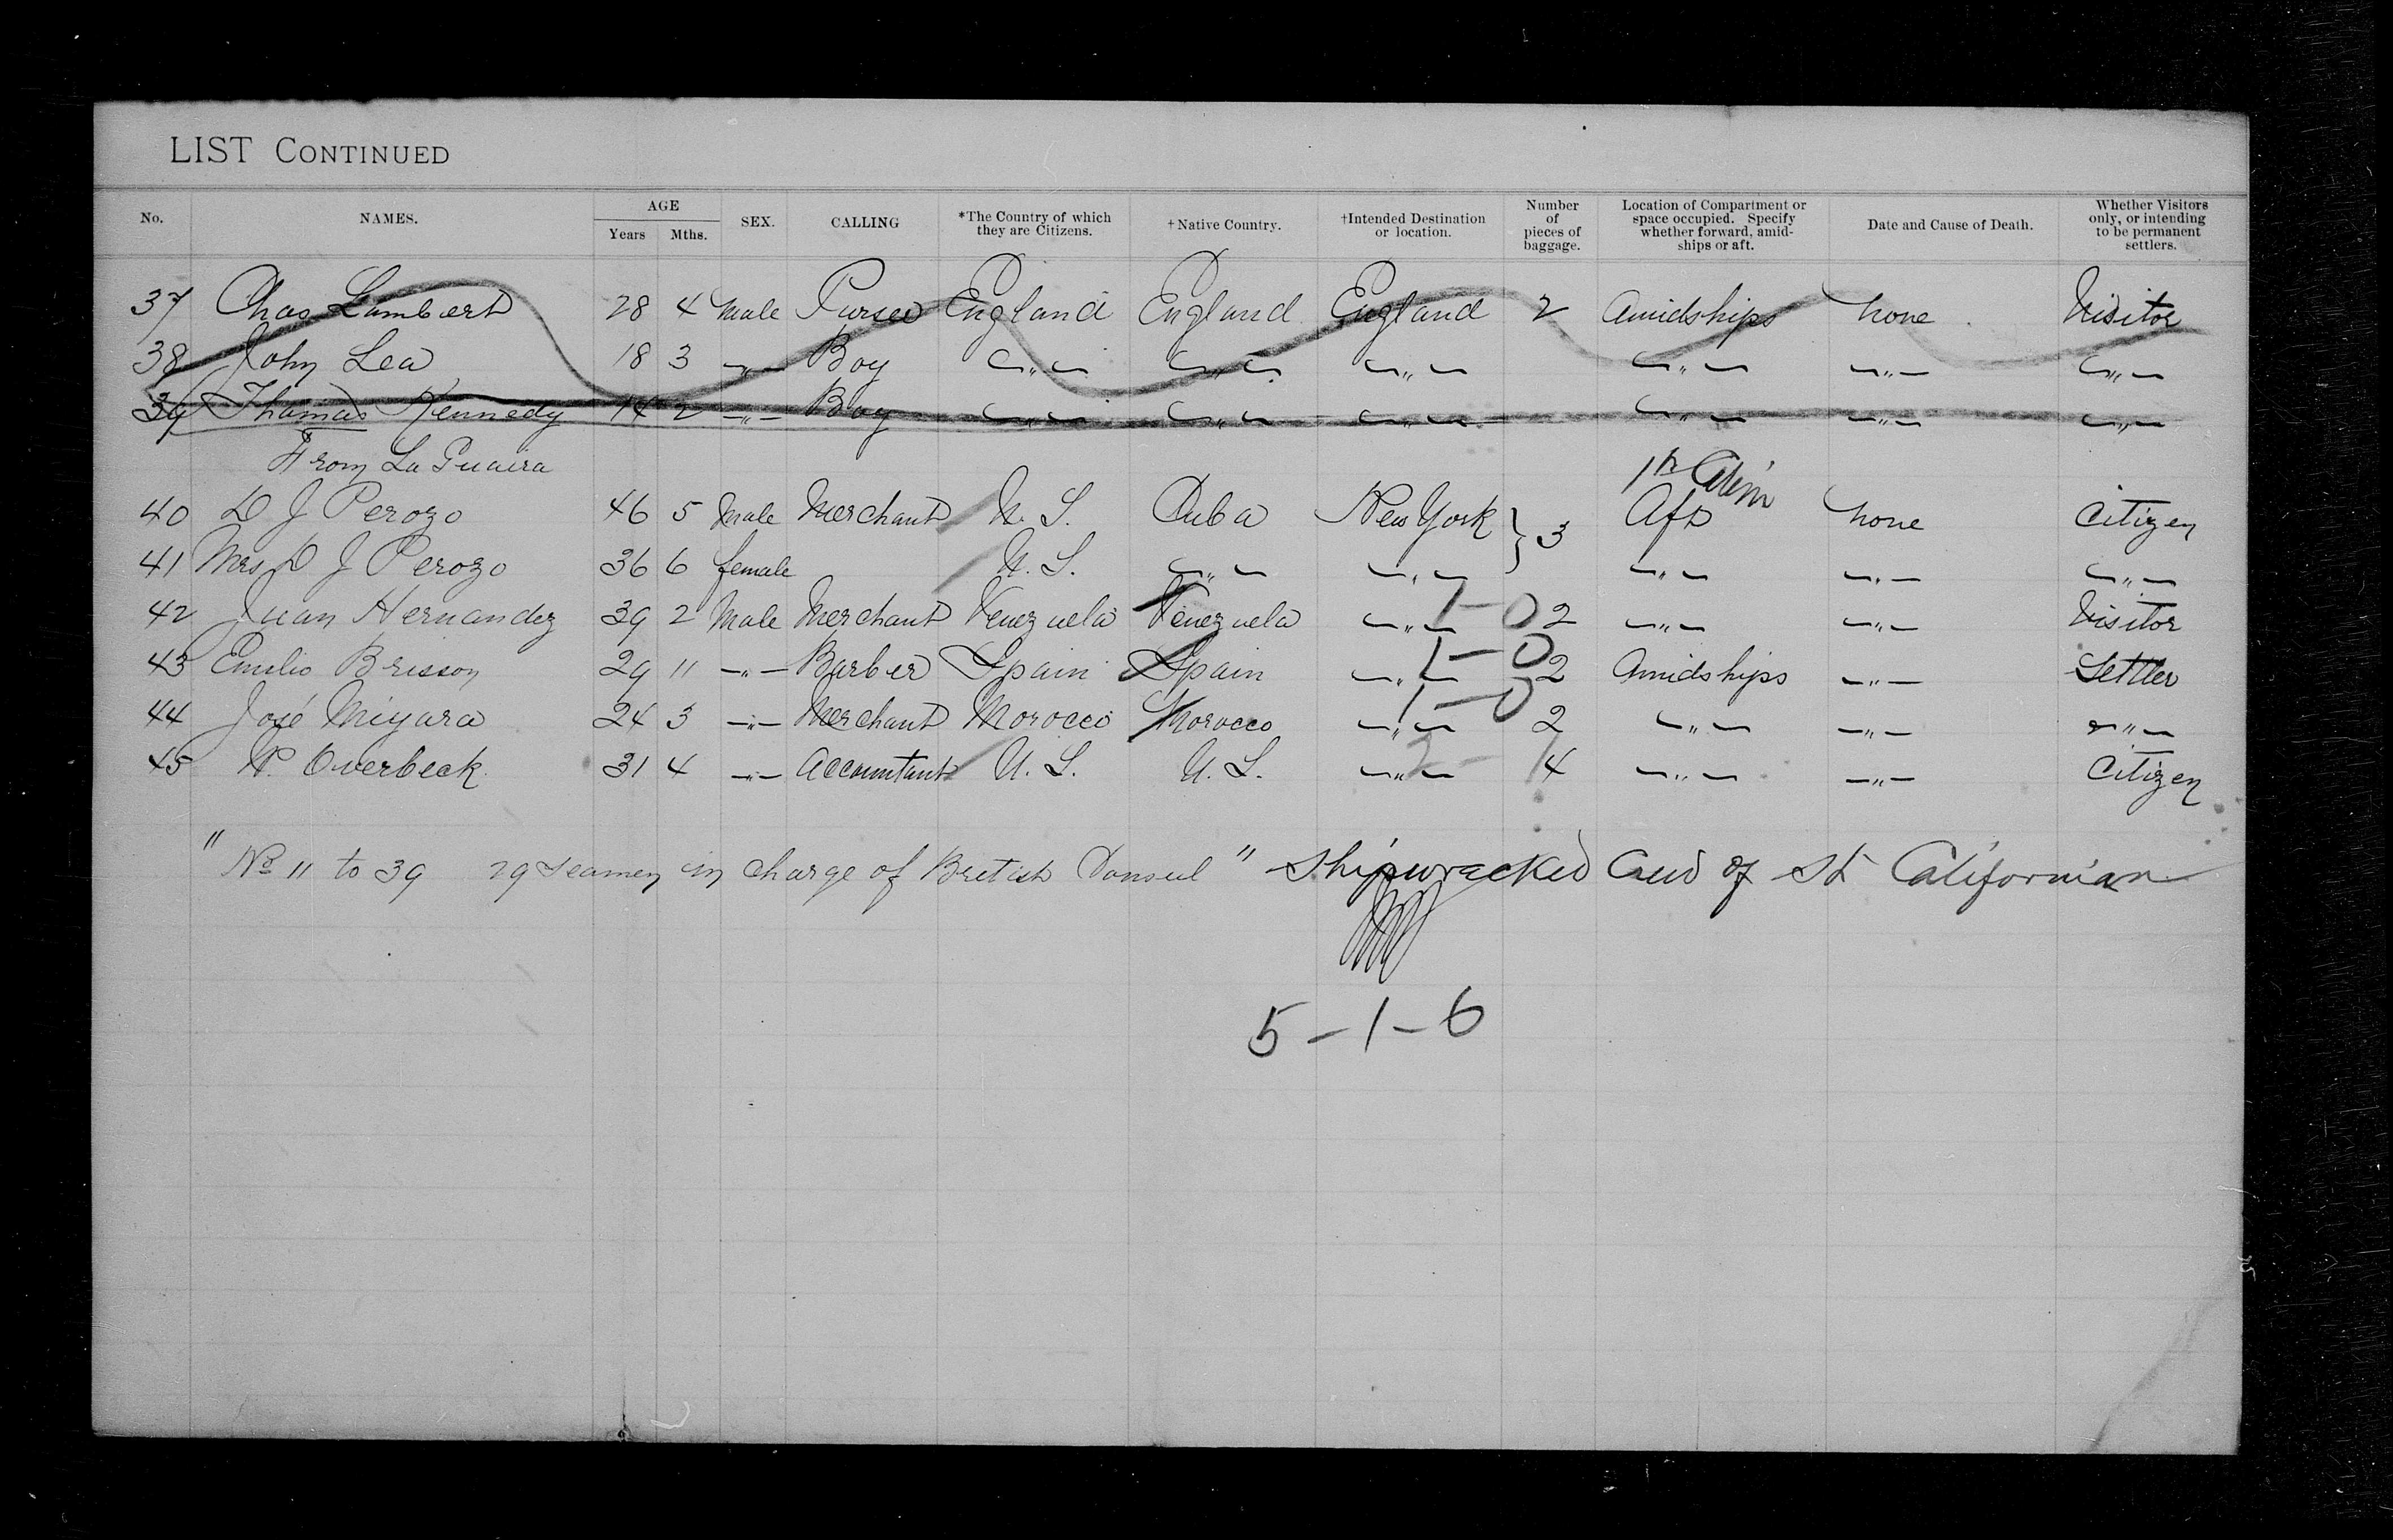 LIST CONTINUED
No. NAMES. AGE Years Mths. SEX. CALLING *The Country of which they are Citizens. †Native Country. †Intended Destination or location. Number of pieces of baggage. Location of Compartment or space occupied. Specify whether forward, amidships or aft. Date and Cause of Death. Whether Visitors only, or intending to be permanent settlers.
37 Chas Lambert 28 4 Male Purser England England England 2 Amidships None Visitor
38 John Lea 18 3 —„— Boy —„— —„— —„— —„— —„— —„—
39 Thomas Kennedy 14 2 —„— Boy —„— —„— —„— —„— —„— —„—
From La Guaira
40 D J Perozo 46 5 Male Merchant U. S. Cuba New York } 3 Aft None Citizen
41 Mrs D J Perozo 36 6 female U. S. —„— —„— —„— —„— —„—
42 Juan Hernandez 39 2 Male Merchant Venezuela Venezuela —„— 1-0 2 —„— —„— Visitor
43 Emilio Brisson 29 11 —„— Barber Spain Spain —„— 1-0 2 Amidships —„— Settler
44 José Miyara 24 3 —„— Merchant Morocco Morocco —„— 1-0 2 —„— —„— —„—
45 Overbeck 31 4 —„— Accountant U. S. U. S. —„— 4 —„— —„— Citizen
"No 11 to 39 29 Seamen in charge of British Consul" Shipwracked Crew of St Californian
5-1-6